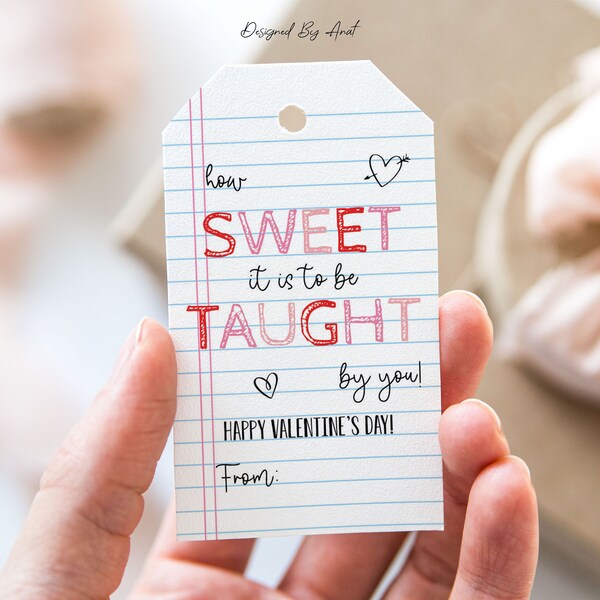 Designed By Anat
how
SWEET
it is to be
TAUGHT
by you!
HAPPY VALENTINE'S DAY!
From: